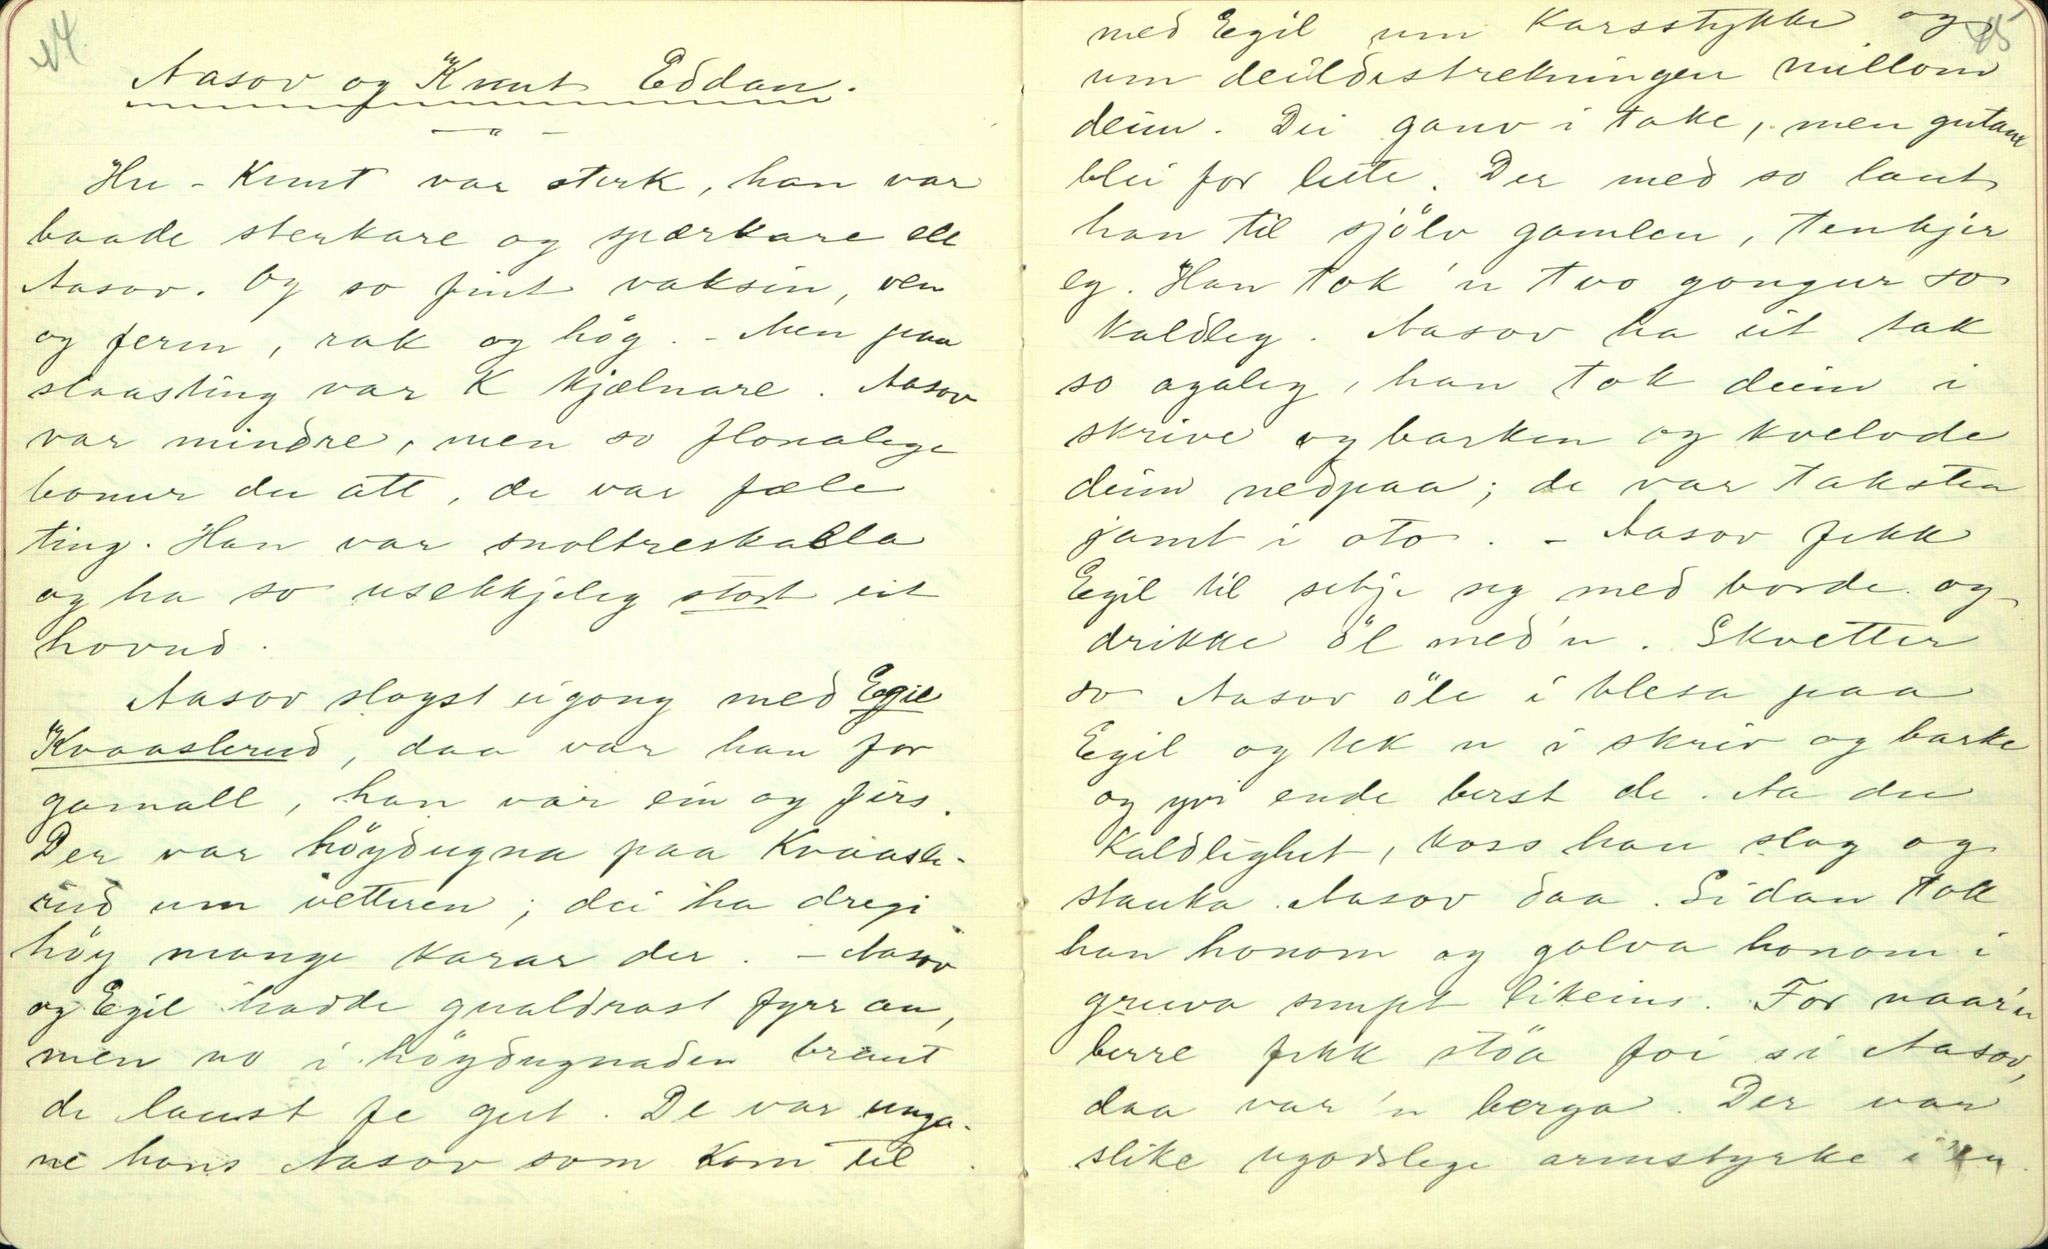 14.
Aasov og Knut Eddan.
— " —
Hu - Knut var sterk, han var
baade sterkare og spærkare ell
Aasov. Og so fint vaksin, ven
og ferm, rak og hög. - Men paa
slaasting var K kjælnare. Aasov
var mindre, men so flonalege
bonur du att, de var fæle
ting. Han var snoltreskalla
og ha so usekkjeleg stort eit
hovud.
Aasov slogst eigong med Egil
Kvaaslerud, daa var han for
gamall, han var ein og firs.
Der var höydugna paa Kvaasle-
rud um vetteren; dei ha dregi
höy mange karar der. - Aasov
og Egil hadde gnaldrast fyrr au,
men no i höydugnaden braut
de laust fe gut. De var unga-
ne hans Aasov som kom til
15
med Egil um Karsstykke og
um deildistrekningen millom
deim. Dei ganv i take, men gutane
blei for lite. Der med so laut
han til sjölv gamlen, tenkjer
eg. Han tok 'n two gongur so
kaldleg. Aasov ha eit tak
so agaleg, han tok deim i
skrive og barken og kvelvde
deim nedpaa; de var taksten
jamt i oto. - Aasov fekk
Egil til setje seg med borde og
drikke öl med'n. Skvetter
so Aasov öle i blesa paa
Egil og tek 'n i skriv og barke
og yvi ende berst de. Aa du
kaldlighet, koss han slog og
stauka Aasov daa. Sidan tok
han honom og golva honom i
gruva snupt likeins. For naar'n
berre fekk stöa foi si Aasov,
daa var 'n berga. Der var
slike ugodslege armstyrke i 'en.